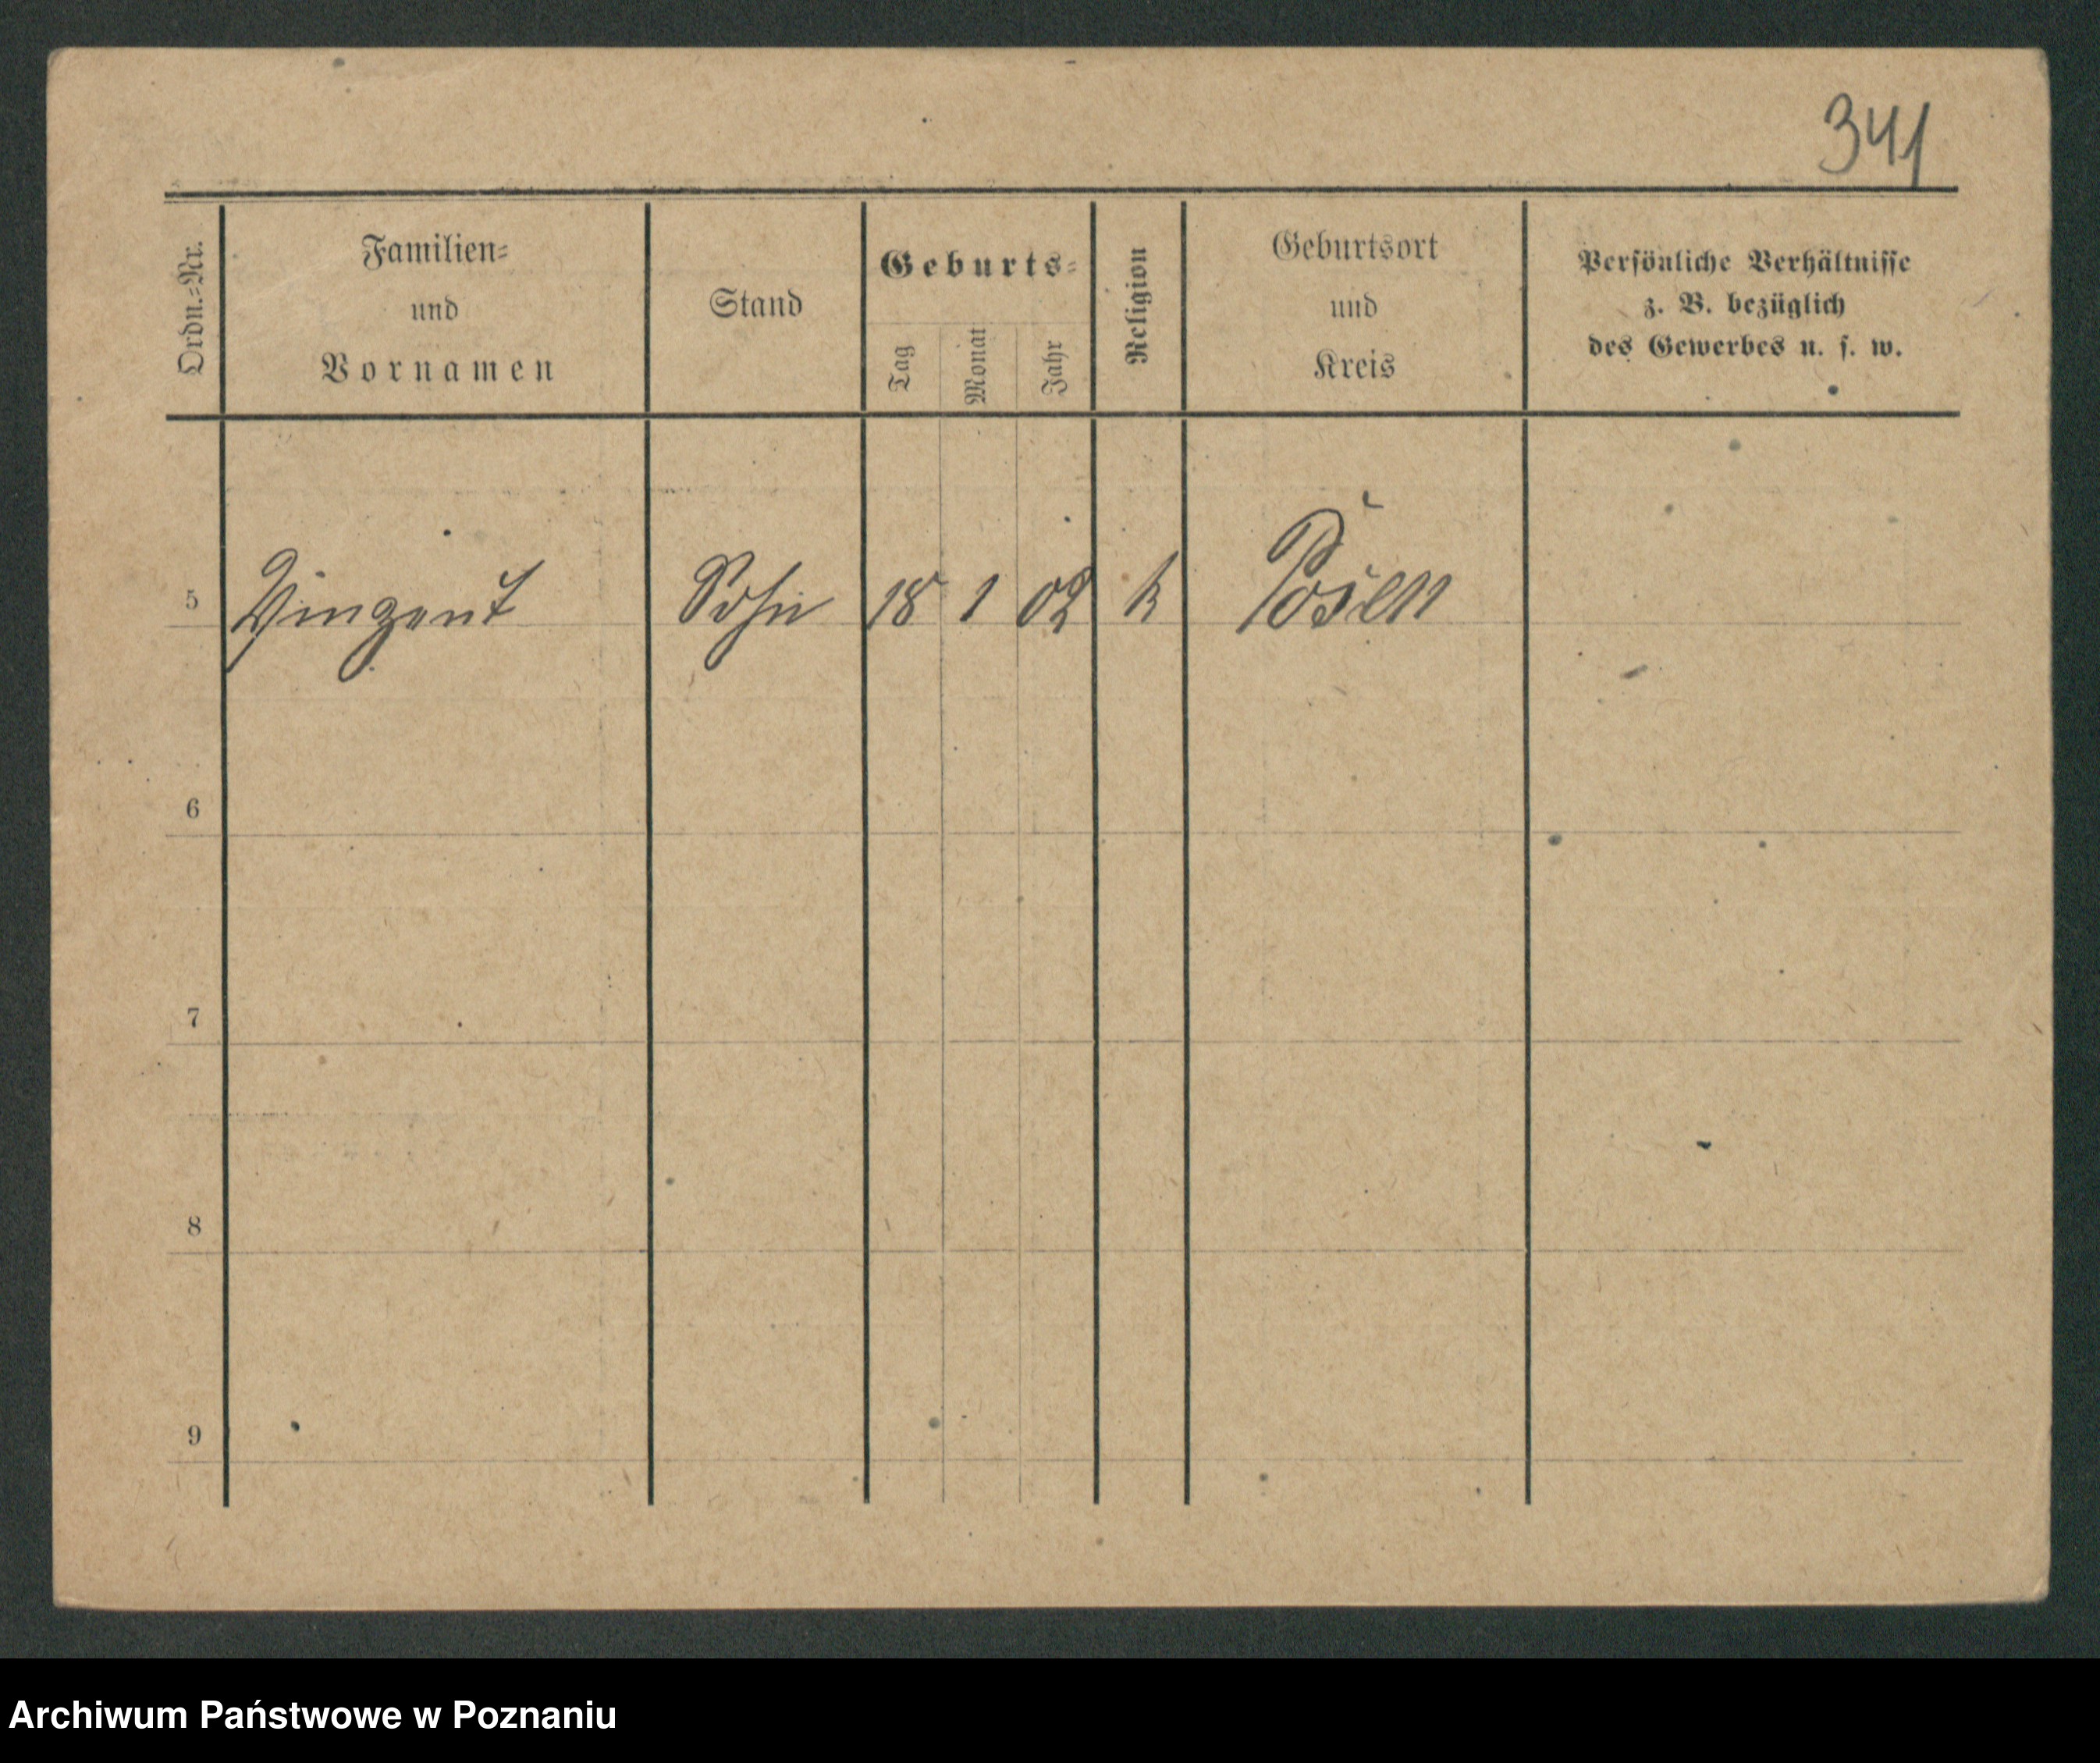 341
Ordn.=Nr.
Familien=
und
Vornamen
Stand
Geburts=
Tag
Monat
Jahr
Religion
Geburtsort
und
Kreis
Persönliche Verhältnisse
z. B. bezüglich
des Gewerbes u. s. w.
5 Vinzent Sohn 18 1 02 k Posen
6
7
8
9
Archiwum Państwowe w Poznaniu